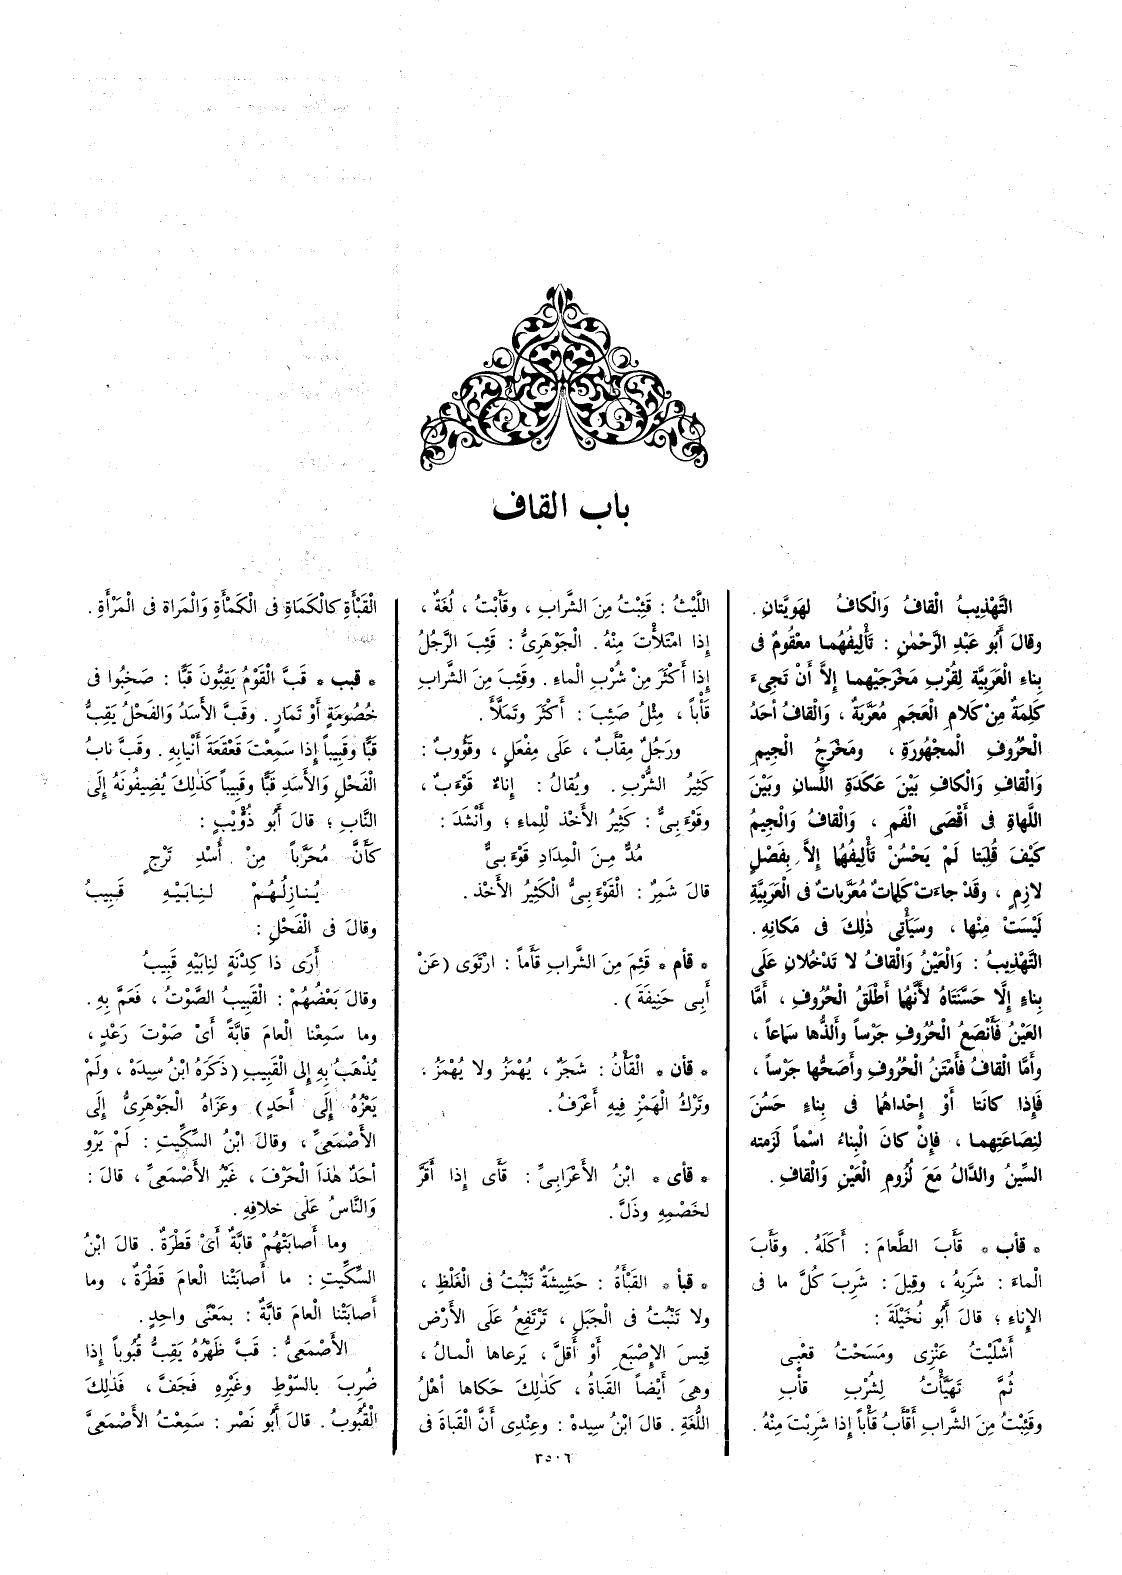 باب القاف
التَّهْذِيبُ الْقافُ وَالْكافُ لهَوِيَّتانِ .
وقالَ أَبُو عَبْدِ الرَّحْمٰنِ : تَأْلِيفُهُما مَعْقُومٌ فى
بِناءِ الْعَرَبِيَّةِ لِقُرْبِ مَخْرَجَيْهِما إِلاَّ أَنْ تَجِىءَ
كَلِمَةٌ مِنْ كَلامِ الْعَجَمِ مُعَرَّبَةٌ ، وَالْقافُ أَحَدُ
الْحُرُوفِ الْمجْهُورَةِ ، ومَخْرَجُ الْجِيمِ
وَالْقافِ وَالْكافِ بَيْنَ عَكَدَةِ اللِّسانِ وبَيْنَ
اللَّهاةِ فى أَقْصَى الْفَمِ ، وَالْقافُ وَالْجِيمُ
كَيْفَ قُلِبَتا لَمْ يَحْسُنْ تَأْلِيفُها إِلاَّ بِفَصْلٍ
لازِمٍ ، وقَدْ جاءَتْ كَلِماتٌ مُعَرَّباتٌ فى الْعَرَبِيَّةِ
لَيْسَتْ مِنْها ، وسَيَأْتِى ذٰلِكَ فى مَكانِهِ .
التَّهْذِيبُ : وَالْعَيْنُ وَالْقافُ لا تَدْخُلانِ عَلَى
بِناءٍ إِلَّا حَسَّنَتاهُ لأَنَّهُما أَطْلَقُ الْحُرُوفِ ، أَمَّا
الْعَيْنُ فَأَنْصَعُ الْحُرُوفِ جَرْساً وأَلَذُّها سَماعاً ،
وأَمَّا الْقافُ فَأَمْتَنُ الْحُرُوفِ وأَصَحُّها جَرْساً ،
فَإِذا كانَتا أَوْ إِحْداهُما فى بِناءٍ حَسُنَ
لِنَصاعَتِهِما ، فَإِنْ كانَ الْبِناءُ اسْماً لَزِمَته
السِّينُ والدَّالُ مَعَ لُزُومِ الْعَيْنِ وَالْقافِ .
* قأب * قَأَبَ الطَّعامَ : أَكَلَهُ . وقَأَبَ
الْماءَ : شَرِبَهُ ، وقِيلَ : شَرِبَ كُلَّ ما فى
الإِناءِ ؛ قالَ أَبُو نُخَيْلَةَ :
أَشْلَيْتُ عَنْزِى ومَسَحْتُ قعْبِى
ثُمَّ تَهَيَّأْتُ لِشُرْبِ قأْبِ
وقَئِبْتُ مِنَ الشَّرابِ أَقْأَبُ قَأْباً إِذا شَرِبْتَ مِنْهُ .
اللَّيْثُ : قَئِبْتُ مِنَ الشَّرابِ ، وقَأَبْتُ ، لُغَةٌ ،
إِذا امْتَلأْتَ مِنْهُ . الْجَوْهَرِىُّ : قَئِبَ الرَّجُلُ
إِذا أَكْثَرَ مِنْ شُرْبِ الْماءِ . وقَئِبَ مِنَ الشَّرابِ
قَأْباً ، مِثْلُ صَئِبَ : أَكْثَرَ وتَمَلَّأَ .
ورَجُلٌ مِقْأَبٌ ، عَلَى مِفْعَلٍ ، وقَؤُوبٌ :
كَثِيرُ الشُّرْبِ . ويُقالُ : إِناءٌ قَوْءَبٌ ،
وقَوْءَبِىٌّ : كَثِيرُ الأَخْذِ لِلْماءِ ؛ وأَنْشَدَ :
مُدٌّ مِنَ الْمِدادِ قَوْءَبِىٌّ
قالَ شَمِرٌ : الْقَوْءَبِىُّ الْكَثِيرُ الأَخْذِ .
* قأم * قَئِمَ مِنَ الشَّرابِ قَأْماً : ارْتَوَى (عَنْ
أَبِى حَنِيفَةَ) .
* قأن * الْقَأْنُ : شَجَرٌ ، يُهْمَزُ ولا يُهْمَزُ ،
وتَرْكُ الْهَمْزِ فِيهِ أَعْرَفُ .
* قأى * ابْنُ الأَعْرَابِىِّ : قَأَى إِذا أَقَرَّ
لخَصْمِهِ وذَلَّ .
* قبأ * القَبْأَةُ : حَشِيشَةٌ تَنْبُتُ فى الْغَلْظِ ،
ولا تَنْبُتُ فى الْجَبَلِ ، تَرْتَفِعُ عَلَى الأَرْضِ
قِيسَ الإِصْبَعِ أَوْ أَقَلَّ ، يَرعاها الْمالُ ،
وهِىَ أَيْضاً القَباةُ ، كَذٰلِكَ حَكاها أَهْلُ
اللُّغَةِ . قالَ ابْنُ سِيدهْ : وعِنْدِى أَنَّ الْقَباةَ فى
الْقَبْأَةِ كالْكَماةِ فى الْكَمْأَةِ وَالْمَراةِ فى الْمَرْأَةِ .
* قبب * قَبَّ الْقَوْمُ يَقِبُّونَ قَبًّا : صَخِبُوا فى
خُصُومَةٍ أَوْ تَمارٍ . وقَبَّ الأَسَدُ وَالفَحْلُ يَقِبُّ
قَبًّا وقَبِيباً إِذا سَمِعْتَ قَعْقَعَةَ أَنْيابِهِ . وقَبَّ نابُ
الْفَحْلِ وَالأَسَدِ قَبًّا وقَبِيباً كَذٰلِكَ يُضِيفُونَهُ إِلَى
النَّابِ ؛ قالَ أَبُو ذُؤَيْبٍ :
كَأَنَّ مُحَرَّباً مِنْ أُسْدِ تَرْجٍ
يُنازِلُهُمْ لِنابَيْهِ قَبِيبُ
وقالَ فى الْفَحْلِ :
أَرَى ذا كِدْنَةٍ لِنابَيْهِ قَبِيبُ
وقالَ بَعْضُهُمْ : الْقَبِيبُ الصَّوْتُ ، فَعَمَّ بِهِ .
وما سَمِعْنا الْعامَ قابَّةً أَىْ صَوْتَ رَعْدٍ ،
يُذْهَبُ بِهِ إِلى الْقَبِيبِ (ذَكَرَهُ ابْنُ سِيدَهْ ، ولَمْ
يَعْزُهُ إِلَى أَحَدٍ) وعَزاهُ الْجَوْهَرِىُّ إِلَى
الأَصْمَعِىِّ ، وقالَ ابْنُ السِّكِّيتِ : لَمْ يَرْوِ
أَحَدٌ هٰذا الْحَرْفَ ، غَيْرُ الأَصْمَعِىِّ ، قالَ :
وَالنَّاسُ عَلَى خلافِهِ .
وما أَصابَتْهُمْ قابَّةٌ أَىْ قَطْرَةٌ . قالَ ابْنُ
السِّكِّيتِ : ما أَصابَتْنا الْعامَ قَطْرَةٌ ، وما
أَصابَتْنا الْعامَ قابَّةٌ : بِمَعْنًى واحِدٍ .
الأَصْمَعِىُّ : قَبَّ ظَهْرُهُ يَقِبُّ قُبُوباً إِذا
ضُرِبَ بِالسَّوْطِ وغَيْرِهِ فَجَفَّ ، فَذٰلِكَ
الْقُبُوبُ . قالَ أَبُو نَصْرٍ : سَمِعْتُ الأَصْمَعِىَّ
٣٥٠٦